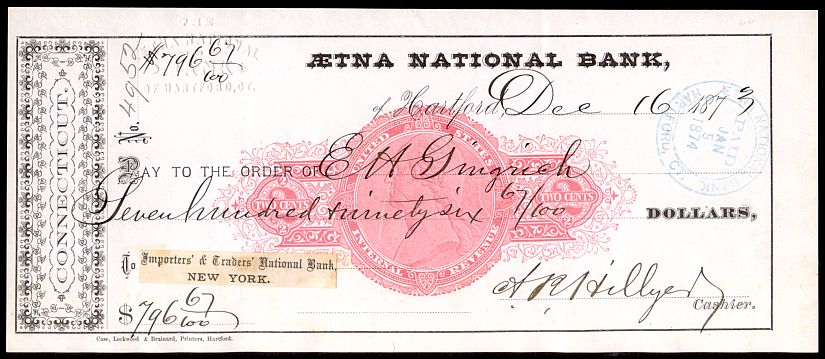 CONNECTICUT.
No. 4952
$796 67/100
ÆTNA NATIONAL BANK,
of Hartford, Dec 16 1873
PAY TO THE ORDER OF E H Gingrich
Seven hundred & ninety six 67/100 DOLLARS,
UNITED STATES
TWO CENTS
TWO CENTS
INTERNAL REVENUE
NATIONAL BANK
PAID
JAN
5
1874
HARTFORD
To Importers' & Traders' National Bank,
NEW YORK.
$796 67/100
A R Hillyer
Cashier.
Case, Lockwood & Brainard, Printers, Hartford.
OF HARTFORD, CT.